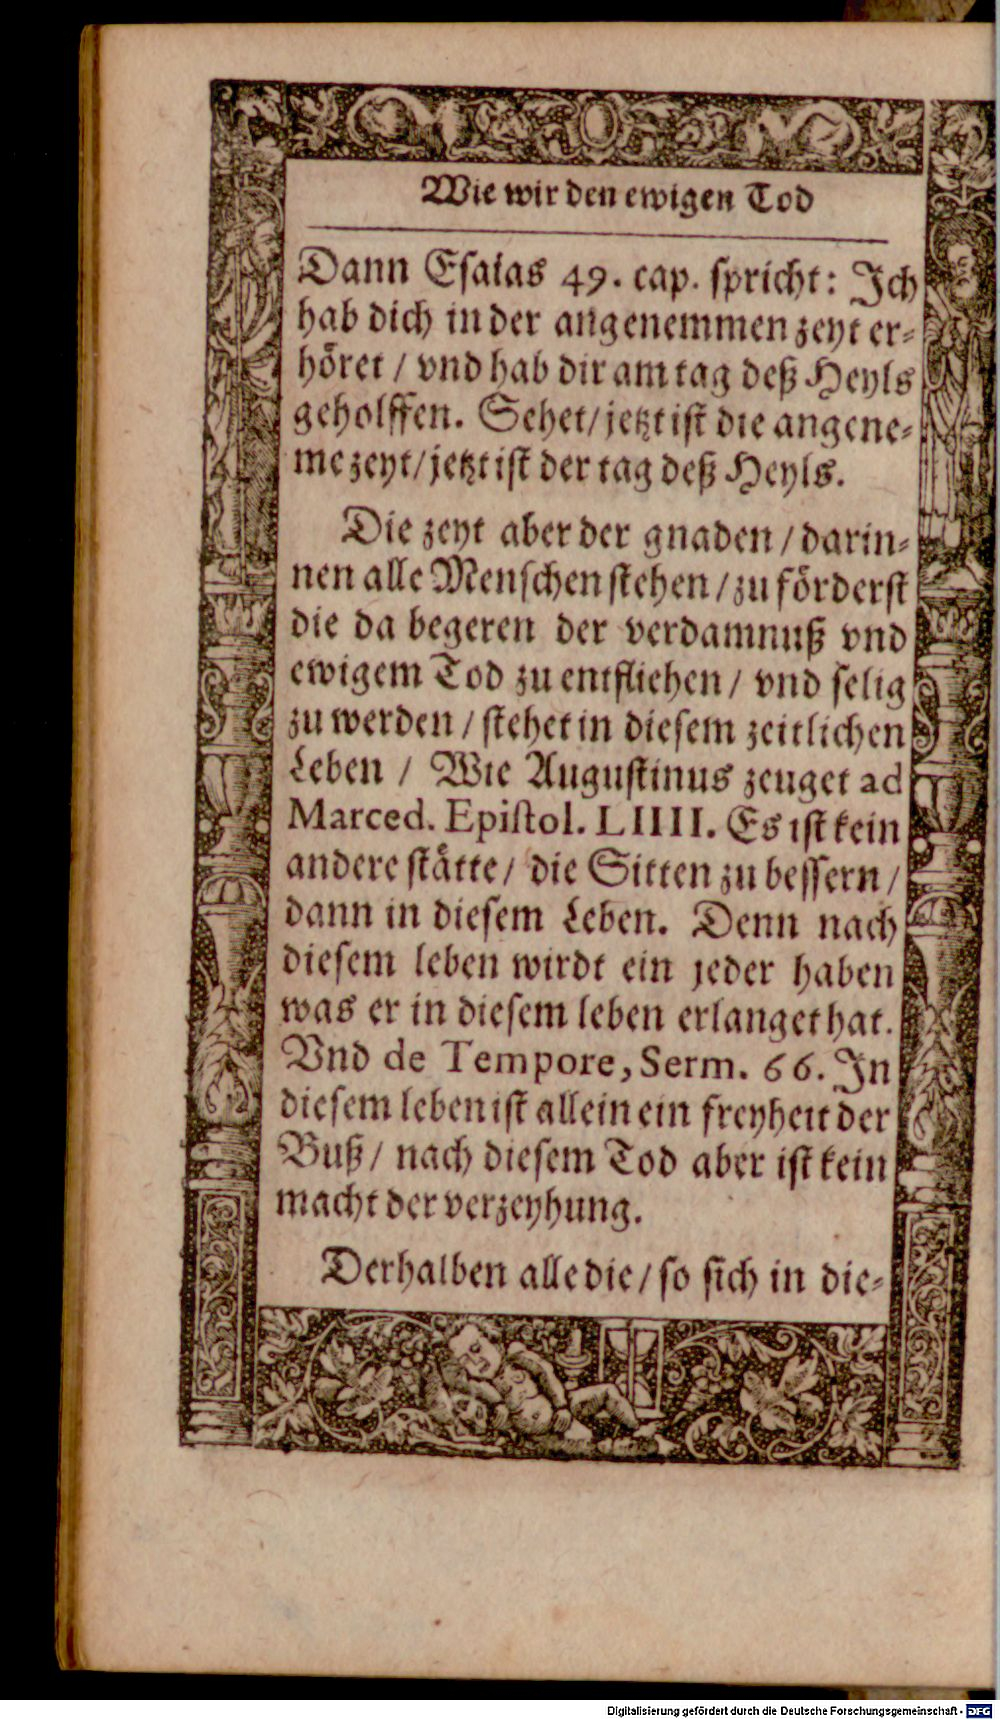 Wie wir den ewigen Tod
Dann Esaias 49. cap. spricht: Ich
hab dich in der angenemmen zeyt er-
höret / vnd hab dir am tag deß Heyls
geholffen. Sehet / jetzt ist die angene-
me zeyt / jetzt ist der tag deß Heyls.
Die zeyt aber der gnaden / darin-
nen alle Menschen stehen / zu förderst
die da begeren der verdamnuß vnd
ewigem Tod zu entfliehen / vnd selig
zu werden / stehet in diesem zeitlichen
Leben / Wie Augustinus zeuget ad
Marced. Epistol. LIIII. Es ist kein
andere stätte / die Sitten zu bessern /
dann in diesem Leben. Denn nach
diesem leben wirdt ein jeder haben
was er in diesem leben erlanget hat.
Vnd de Tempore, Serm. 66. In
diesem leben ist allein ein freyheit der
Buß / nach diesem Tod aber ist kein
macht der verzeyhung.
Derhalben alle die / so sich in die-
Digitalisierung gefördert durch die Deutsche Forschungsgemeinschaft - DFG